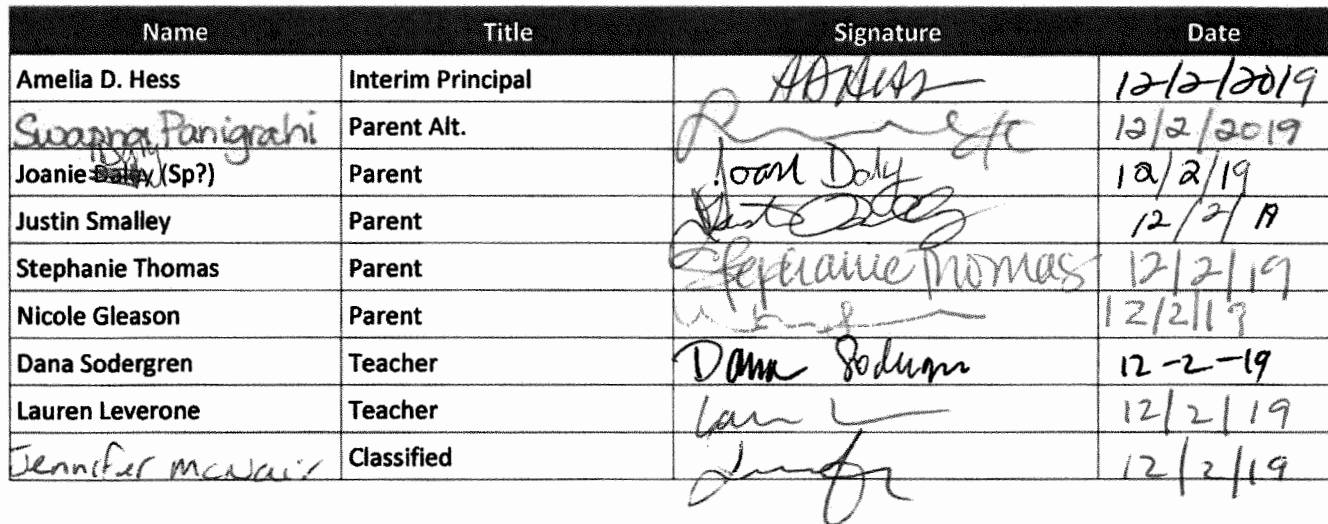 Name Title Signature Date
Amelia D. Hess Interim Principal 12/2/2019
Swapna Panigrahi Parent Alt. 12/2/2019
Daly
Joanie (Sp?) Parent Joan Daly 12/2/19
Justin Smalley Parent 12/2/19
Stephanie Thomas Parent Stephanie Thomas 12/2/19
Nicole Gleason Parent 12/2/19
Dana Sodergren Teacher Dana 12-2-19
Lauren Leverone Teacher 12/2/19
Jennifer McNair Classified 12/2/19